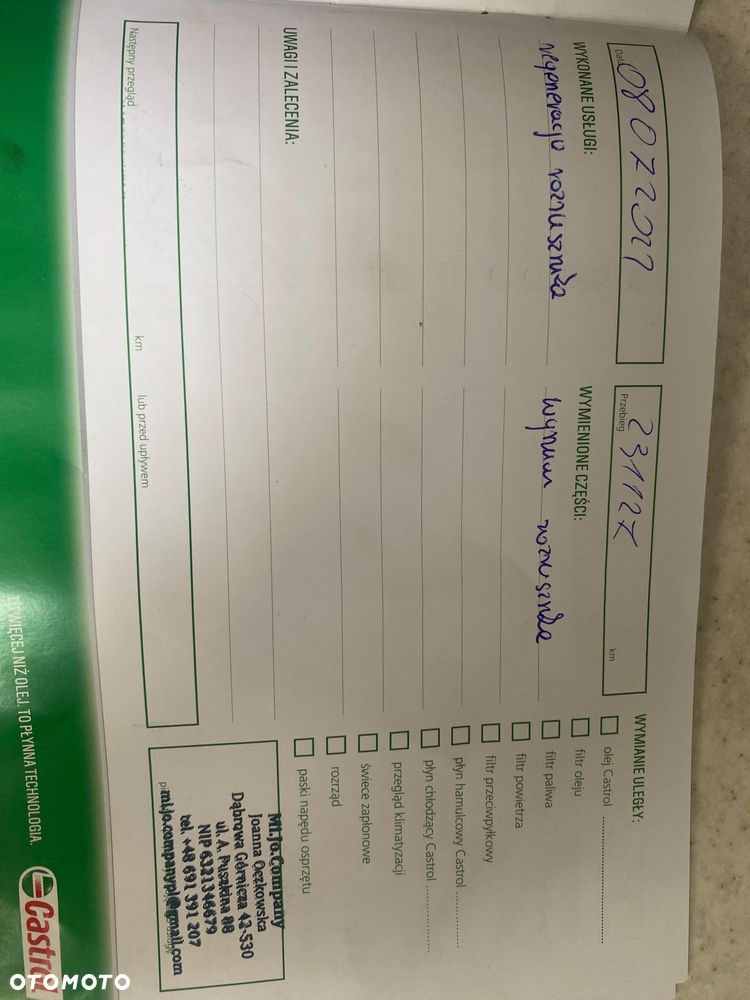 Data
08 07 2021
Przebieg
231127
km
WYKONANE USŁUGI:
regeneracja rozrusznika
WYMIENIONE CZĘŚCI:
rozrusznika
WYMIANIE ULEGŁY:
olej Castrol
filtr oleju
filtr paliwa
filtr powietrza
filtr przeciwpyłkowy
płyn hamulcowy Castrol
płyn chłodzący Castrol
przegląd klimatyzacji
świece zapłonowe
rozrząd
paski napędu osprzętu
UWAGI I ZALECENIA:
Następny przegląd
km
lub przed upływem
Mi.Jo.Company
Joanna Oczkowska
Dąbrowa Górnicza 42-530
ul. A. Puszkina 88
NIP 6321346679
tel. +48 691 391 207
mi.jo.companypl@gmail.com
WIĘCEJ NIŻ OLEJ. TO PŁYNNA TECHNOLOGIA.
Castrol
OTOMOTO